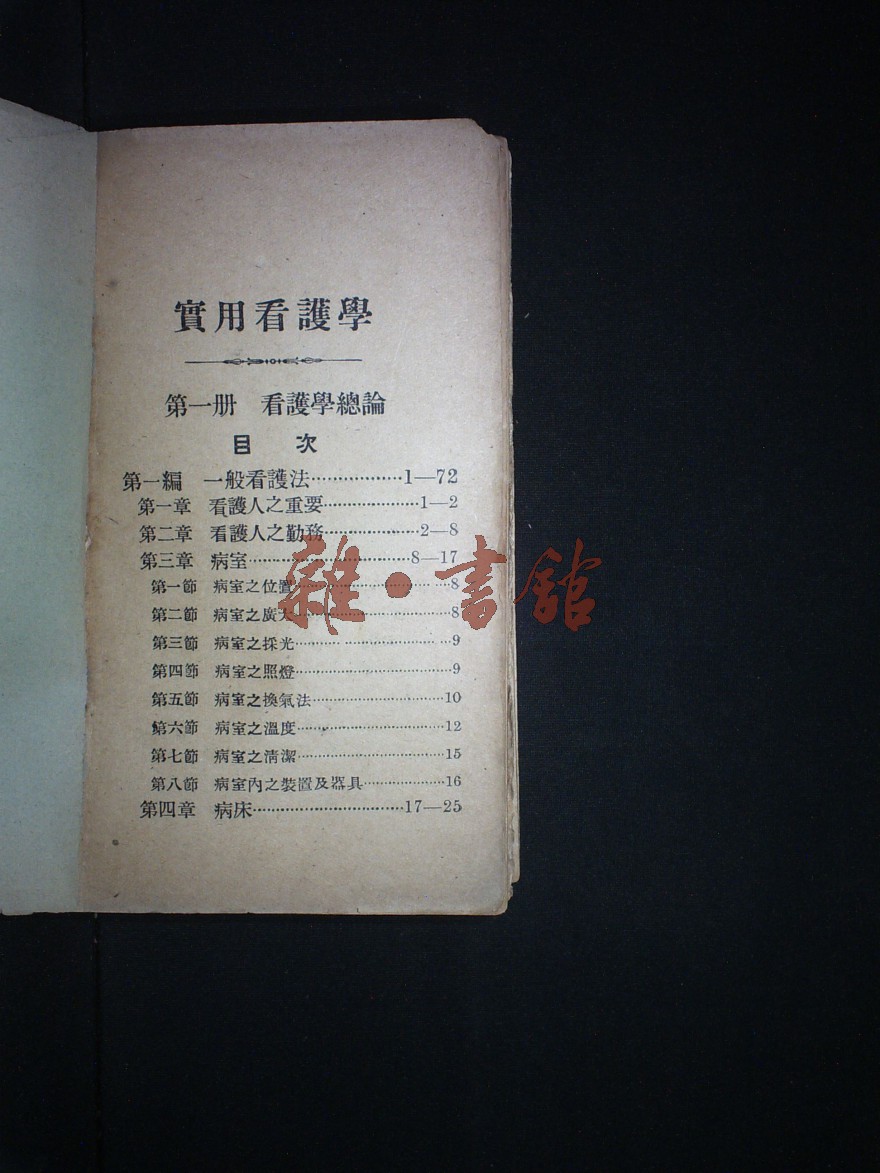 實用看護學
第一册 看護學總論
目 次
第一編 一般看護法··················1—72
第一章 看護人之重要···················1—2
第二章 看護人之勤務··················2—8
第三章 病室································8—17
第一節 病室之位置································8
第二節 病室之廣大································8
第三節 病室之採光································9
第四節 病室之照燈································9
第五節 病室之換氣法···························10
第六節 病室之溫度······························12
第七節 病室之清潔······························15
第八節 病室內之裝置及器具·················16
第四章 病床······························17—25
雜·書館